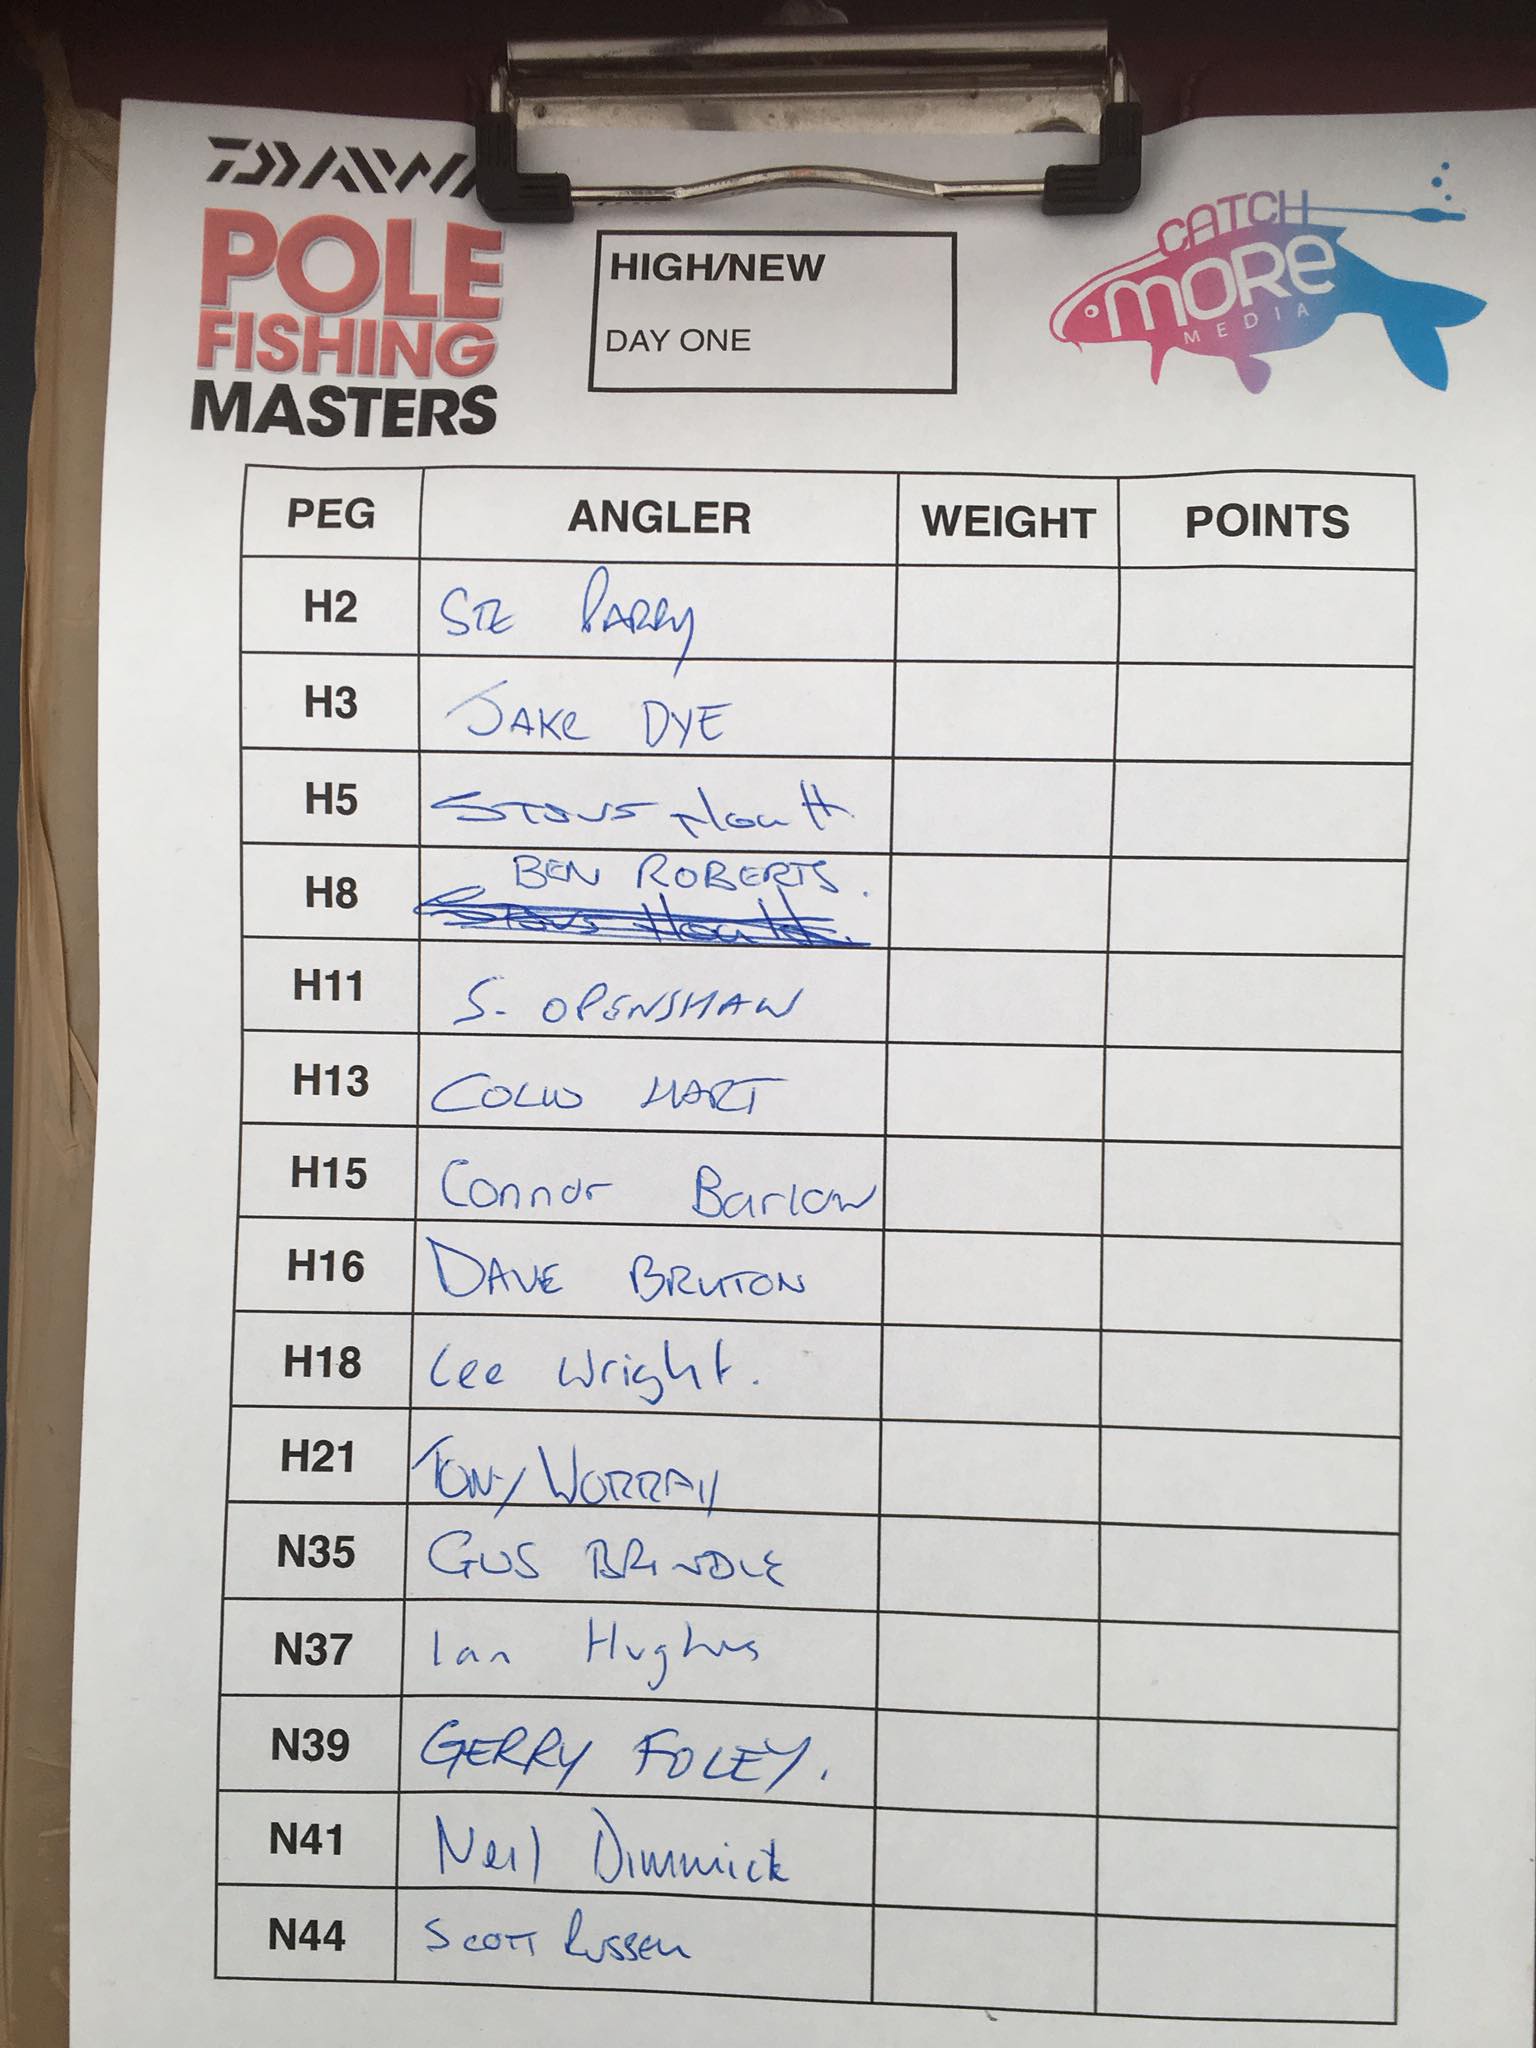 DAIWA
POLE
FISHING
MASTERS
HIGH/NEW
DAY ONE
CATCH
MORE
MEDIA
PEG ANGLER WEIGHT POINTS
H2 STE PARRY
H3 JAKE DYE
H5
H8 BEN ROBERTS.
H11 S. OPENSHAW
H13 COLIN HART
H15 Connor Barlow
H16 DAVE BRUTON
H18 Lee Wright.
H21 TONY WORRAY
N35 GUS BRINDLE
N37 Ian Hughes
N39 GERRY FOLEY.
N41 Neil Dimmick
N44 SCOTT RUSSELL